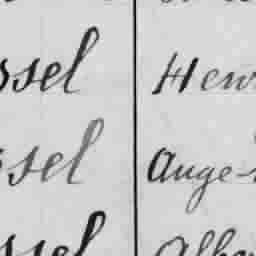 ssel Henr
ssel Auge-
ssel Albe